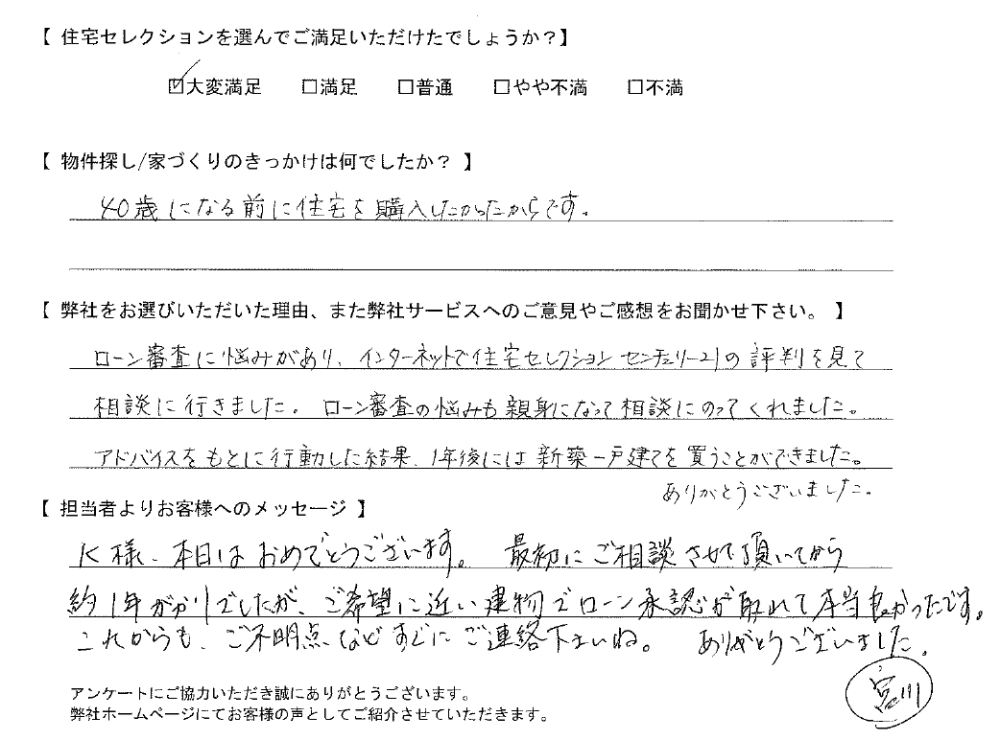 【 住宅セレクションを選んでご満足いただけたでしょうか?】
☑大変満足 □満足 □普通 □やや不満 □不満
【 物件探し/家づくりのきっかけは何でしたか? 】
40歳になる前に住宅を購入したかったからです。
【 弊社をお選びいただいた理由、また弊社サービスへのご意見やご感想をお聞かせ下さい。 】
ローン審査に悩みがあり、インターネットで住宅セレクション センチュリー21の評判を見て
相談に行きました。ローン審査の悩みも親身になって相談にのってくれました。
アドバイスをもとに行動した結果、1年後には新築一戸建てを買うことができました。
ありがとうございました。
【 担当者よりお客様へのメッセージ 】
K様、本日はおめでとうございます。 最初にご相談させて頂いてから
約1年がかりでしたが、ご希望に近い建物でローン承認が取れて本当良かったです。
これからも、ご不明点などすぐにご連絡下さいね。 ありがとうございました。
宮川
アンケートにご協力いただき誠にありがとうございます。
弊社ホームページにてお客様の声としてご紹介させていただきます。